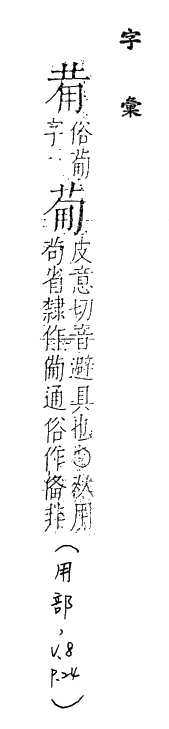 字彙
𤰇
俗𤰈
字
𤰈
皮意切音避具也〇从用
茍省隸作𤰈通俗作俻非
(用部,
V.8
P.24)